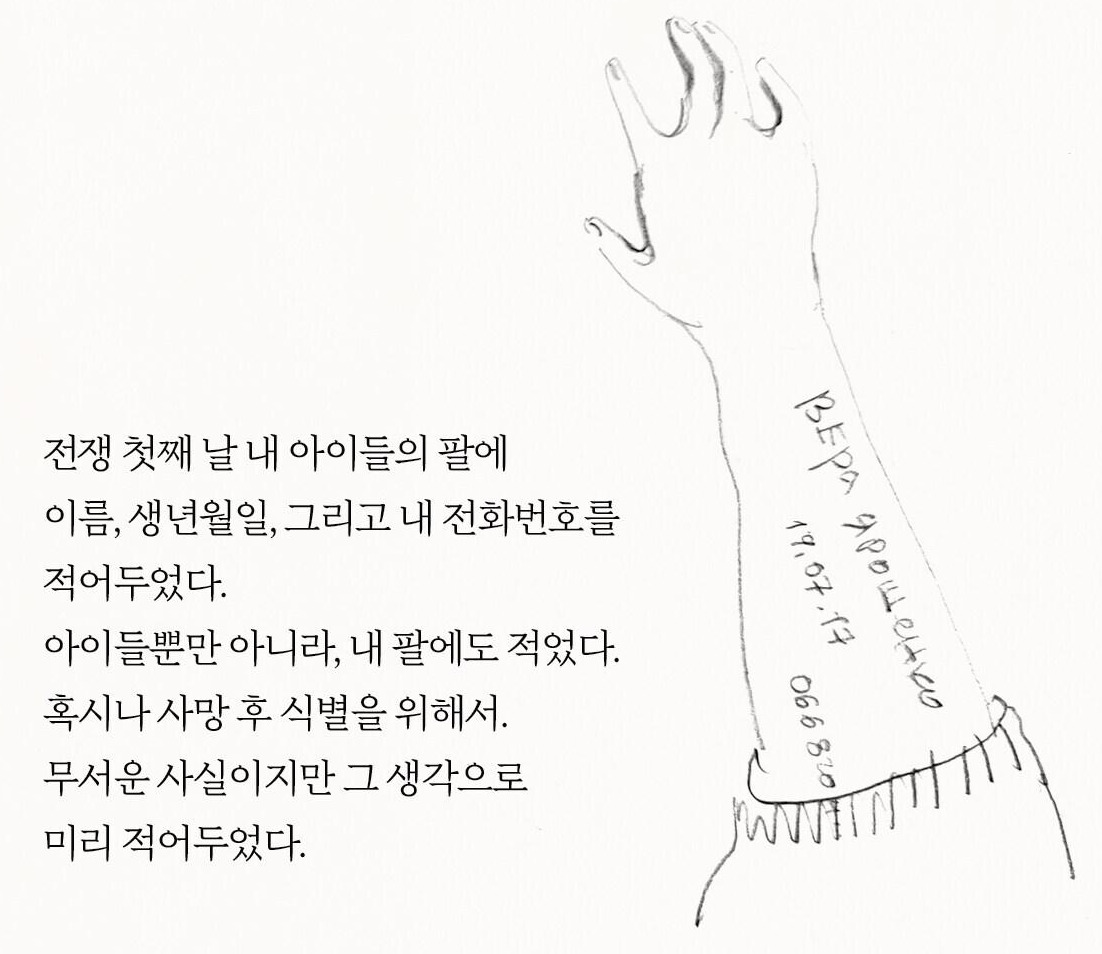 전쟁 첫째 날 내 아이들의 팔에
이름, 생년월일, 그리고 내 전화번호를
적어두었다.
아이들뿐만 아니라, 내 팔에도 적었다.
혹시나 사망 후 식별을 위해서.
무서운 사실이지만 그 생각으로
미리 적어두었다.
ВЕРА
19.07.17